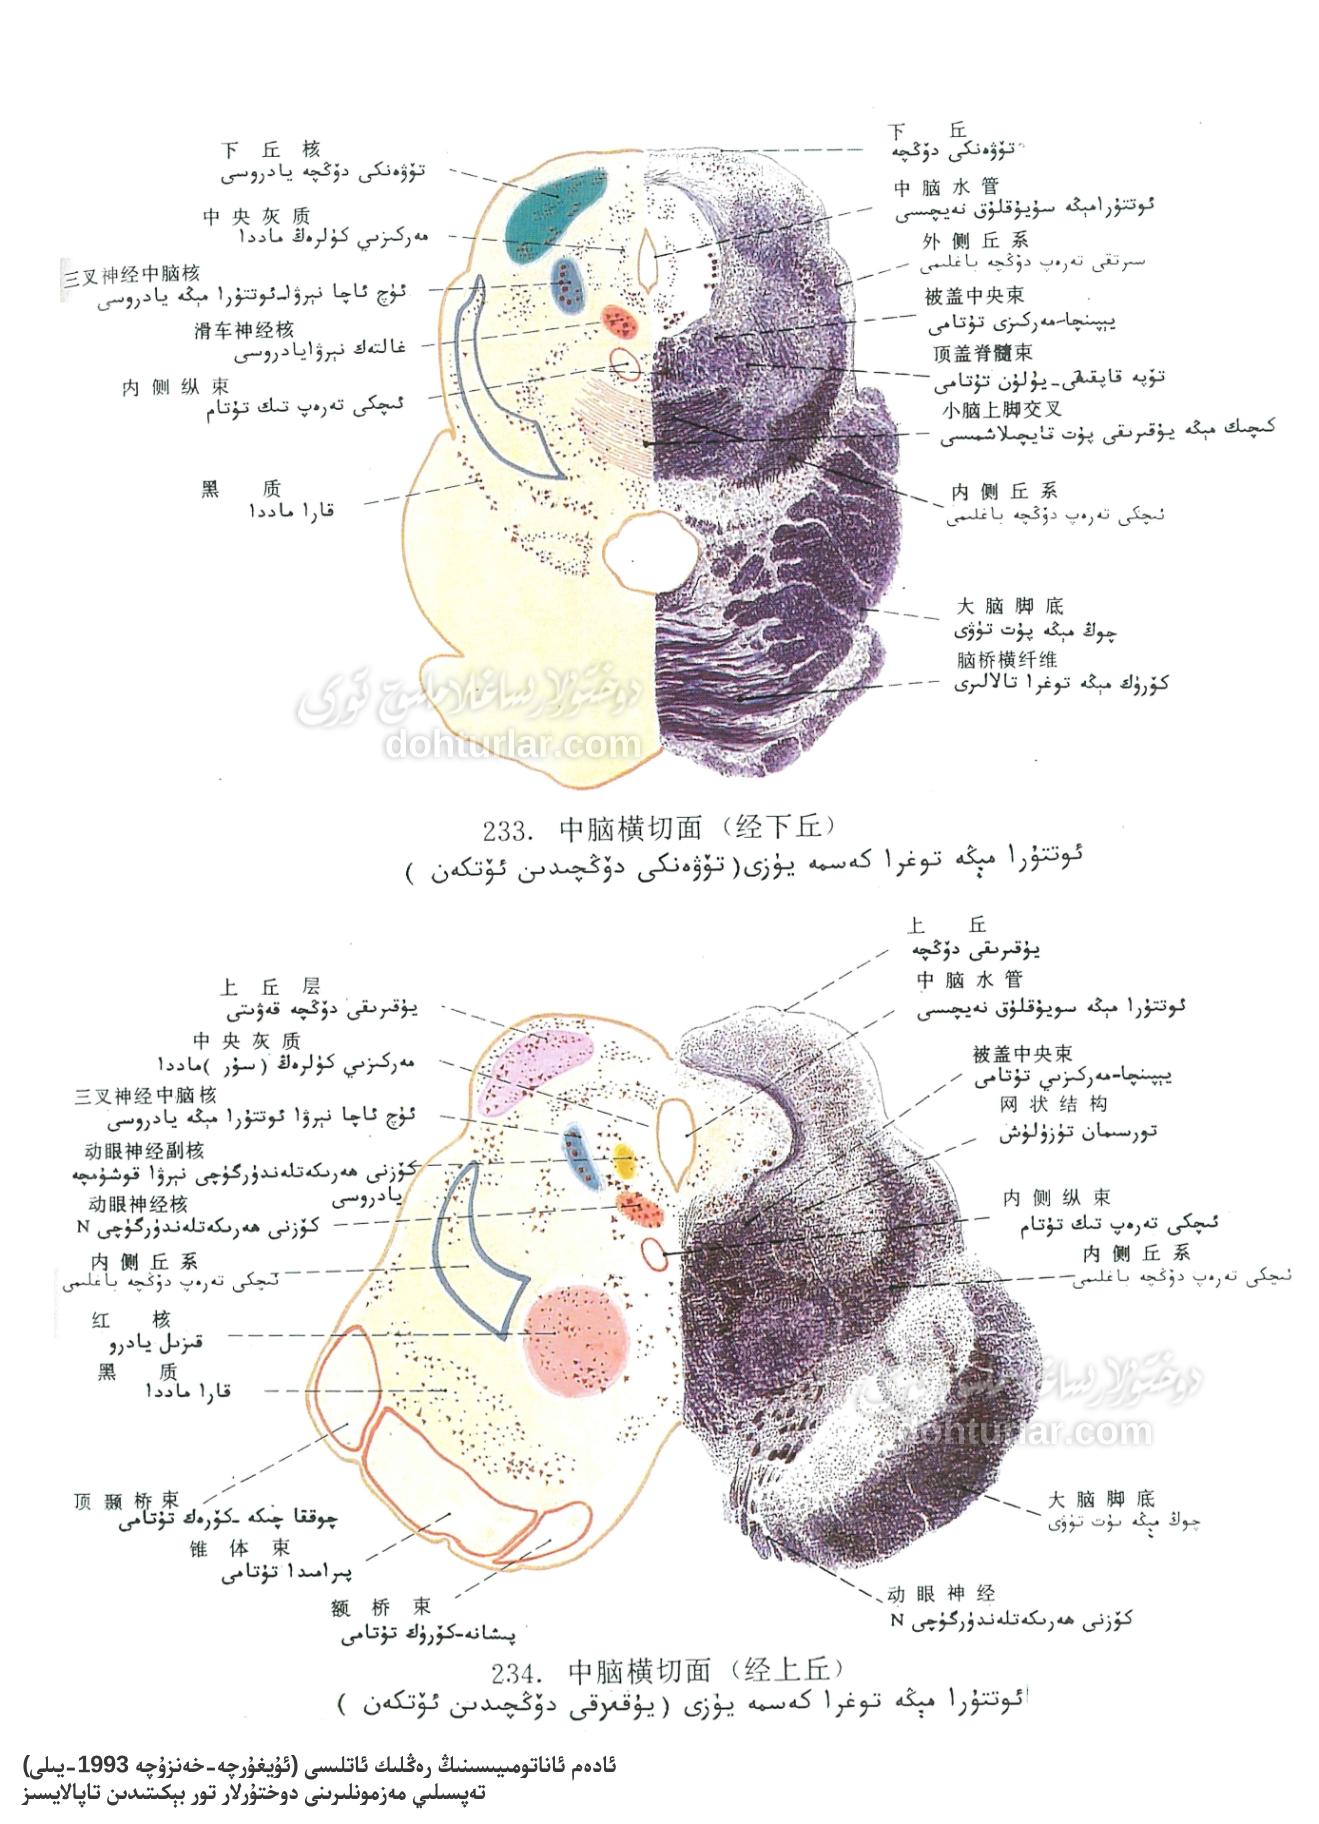 下丘核
تۆۋەنكى دۆڭچە يادروسى
中央灰质
مەركىزىي كۈلرەڭ ماددا
三叉神经中脑核
ئۈچ ئاچا نېرۋا-ئوتتۇرا مېڭە يادروسى
滑车神经核
غالتەك نېرۋايادروسى
内侧纵束
ئىچكى تەرەپ تىك تۇتام
黑质
قارا ماددا
下丘
تۆۋەنكى دۆڭچە
中脑水管
ئوتتۇرامېڭە سۇيۇقلۇق نەيچىسى
外侧丘系
سىرتقى تەرەپ دۆڭچە باغلىمى
被盖中央束
يېپىنچا-مەركىزى تۇتامى
顶盖脊髓束
تۆپە قاپقىقى-يۇلۇن تۇتامى
小脑上脚交叉
كىچىك مېڭە يۇقىرىقى پۇت قايچىلاشمىسى
内侧丘系
ئىچكى تەرەپ دۆڭچە باغلىمى
大脑脚底
چوڭ مېڭە پۇت تۈۋى
脑桥横纤维
كۆرۈك مېڭە توغرا تالالىرى
دوختۇرلار ساغلاملىق تورى
dohturlar.com
233. 中脑横切面（经下丘）
ئوتتۇرا مېڭە توغرا كەسمە يۈزى(تۆۋەنكى دۆڭچىدىن ئۆتكەن )
上丘层
يۇقىرىقى دۆڭچە قەۋىتى
中央灰质
مەركىزىي كۈلرەڭ (سۇر )ماددا
三叉神经中脑核
ئۈچ ئاچا نېرۋا ئوتتۇرا مېڭە يادروسى
动眼神经副核
كۆزنى ھەرىكەتلەندۈرگۈچى نېرۋا قوشۇمچە
يادروسى
动眼神经核
كۆزنى ھەرىكەتلەندۈرگۈچى N
内侧丘系
ئىچكى تەرەپ دۆڭچە باغلىمى
红核
قىزىل يادرو
黑质
قارا ماددا
顶颞桥束
چوققا چىكە -كۆرەك تۇتامى
锥体束
پىرامىدا تۇتامى
额桥束
پىشانە-كۆرۈك تۇتامى
上丘
يۇقىرىقى دۆڭچە
中脑水管
ئوتتۇرا مېڭە سويۇقلۇق نەيچىسى
被盖中央束
يېپىنچا-مەركىزىي تۇتامى
网状结构
تورسىمان تۈزۈلۈش
内侧纵束
ئىچكى تەرەپ تىك تۇتام
内侧丘系
ئىچكى تەرەپ دۆڭچە باغلىمى
دوختۇرلار ساغلاملىق تورى
dohturlar.com
大脑脚底
چوڭ مېڭە پۇت تۈۋى
动眼神经
كۆزنى ھەرىكەتلەندۈرگۈچى N
234. 中脑横切面（经上丘）
ئوتتۇرا مېڭە توغرا كەسمە يۈزى (يۇقىرقى دۆڭچىدىن ئۆتكەن )
ئادەم ئاناتومىيىسىنىڭ رەڭلىك ئاتلىسى (ئۇيغۇرچە-خەنزۇچە 1993-يىلى)
تەپسىلىي مەزمونلىرىنى دوختۇرلار تور بېكىتىدىن تاپالايسىز